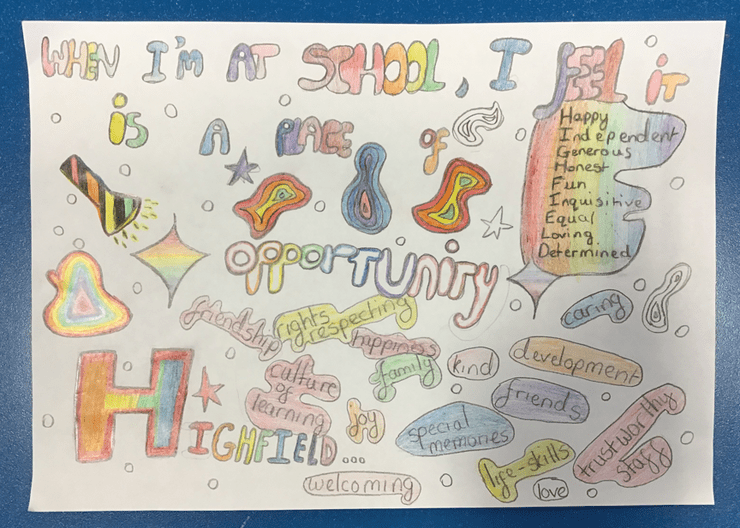 WHEN I'M AT SCHOOL, I FEEL it
is A PLACE OF
Happy
Independent
Generous
Honest
Fun
Inquisitive
Equal
Loving
Determined
OPPORTUNITY
friendship
rights
respecting
happiness
caring
family
kind
development
culture
of
learning
joy
friends
special
memories
HIGHFIELD...
life-skills
trustworthy
staff
welcoming
love